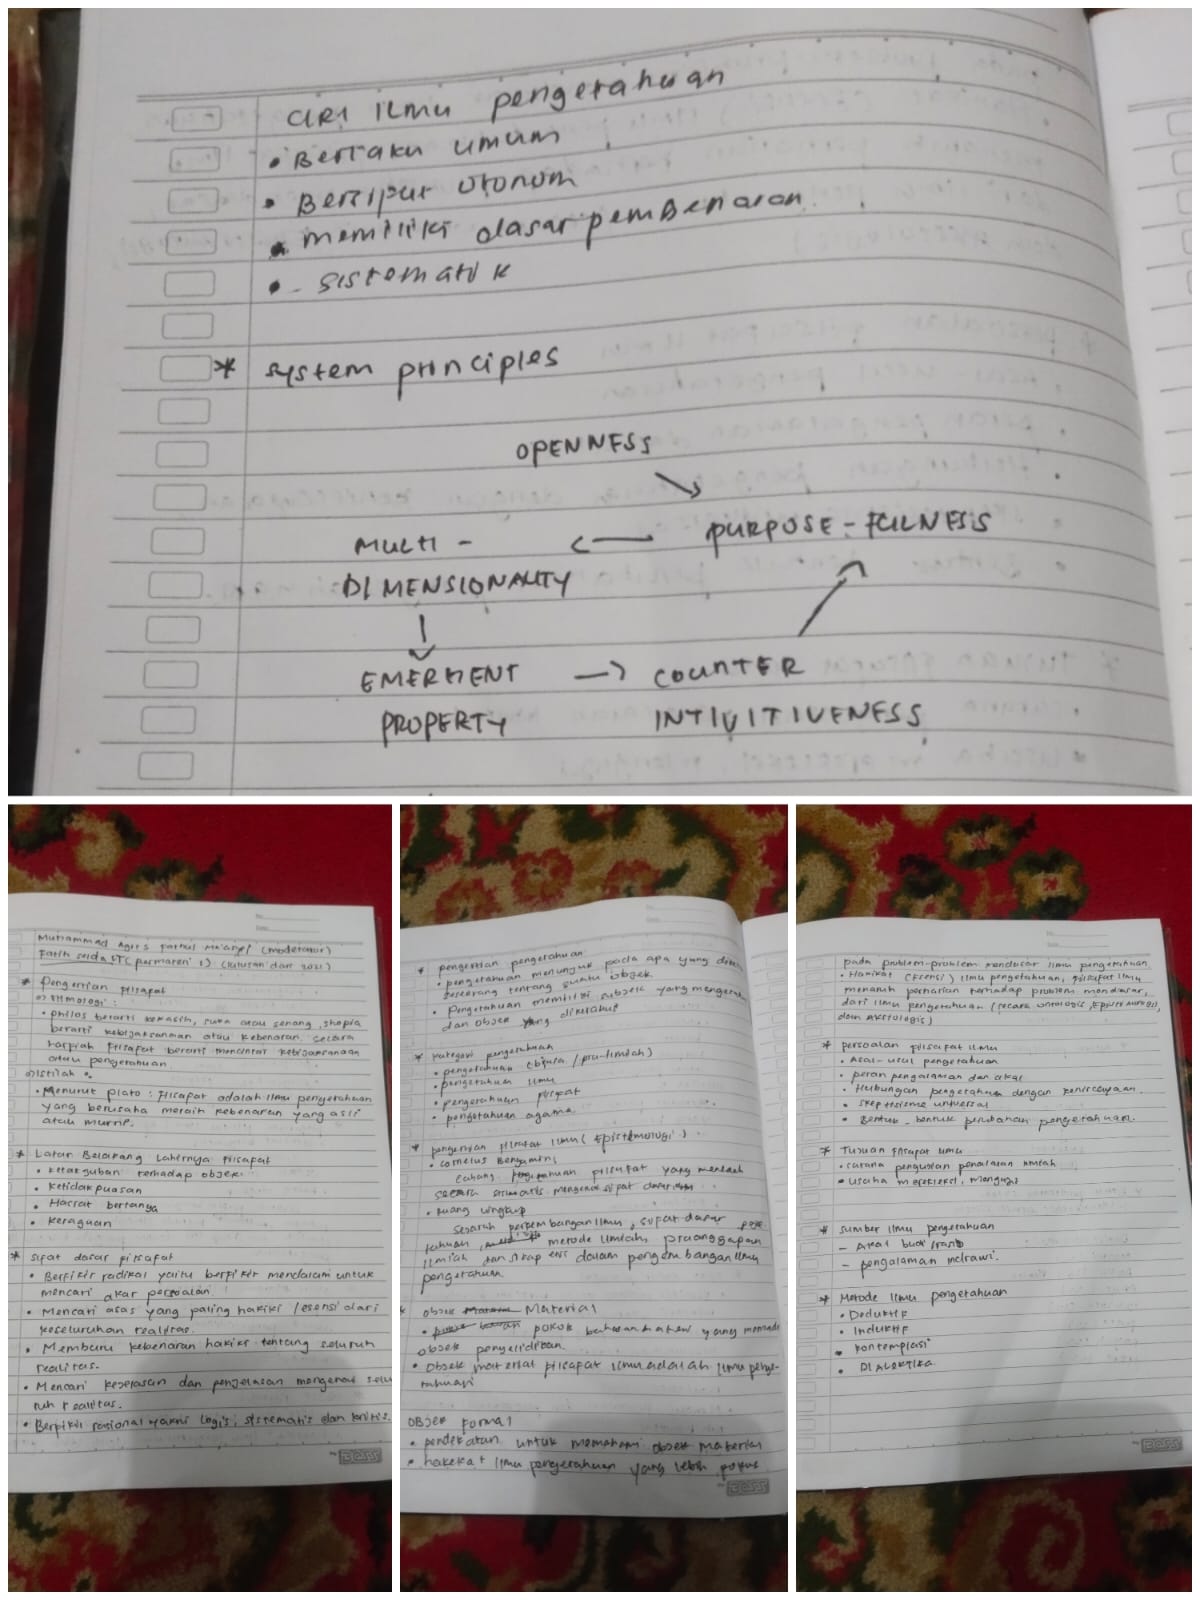 CIRI ILMU pengetahuan
• Berlaku umum
• Bersipat otonom
• memiliki dasar pembenaran
• - sistematik
* system principles
OPENNESS
MULTI - PURPOSE - FULNESS
DIMENSIONALITY
EMERHENT COUNTER
PROPERTY INTIVITIVENESS
Muhammad Agits Fathul Ma'arif (moderator)
Fatih Saida, ST (pemateri 1) (lulusan dari 2021)
* Pengertian pilsapat
a) Etimologi :
• philos berarti kekasih, suka atau senang, shopia
berarti kebijaksanaan atau kebenaran, secara
harpiah Filsapat berarti mencintai kebijaksanaan
atau pengetahuan
b) Istilah :
• Menurut plato : Filsapat adalah ilmu pengetahuan
yang berusaha meraih kebenaran yang asli
atau murni.
* Latar Belakang Lahirnya Filsapat
• ketakjuban terhadap objek
• ketidakpuasan
• Hasrat bertanya
• keraguan
* sipat dasar pilsapat
• Berfikir radikal yaitu berpikir mendalam untuk
mencari akar persoalan
• Mencari asas yang paling hakiki / esensi dari
keseluruhan realitas.
• Memburu kebenaran hakiki tentang seluruh
realitas.
• Mencari kejelasan dan penjelasan mengenai selu
ruh realitas.
• Berpikir rasional yakni logis, sistematis dan kritis.
BOSS
* pengertian pengetahuan
• pengetahuan menunjuk pada apa yang
seseorang tentang suatu objek
• Pengetahuan memiliki subjek yang
dan objek yang diketahui
* kategori pengetahuan
• pengetahuan (biasa / pra-ilmiah)
• pengetahuan ilmu
• pengetahuan pilsapat
• pengetahuan agama
* pengertian filsafat ilmu (Epistemologi)
• cornelius Benyamin,
cabang pilsapat yang menelaah
secara sistematis mengenai sipat dasar ilmu
• ruang lingkup
sejarah perkembangan ilmu, sipat dasar
tahuan, metode ilmiah, praanggapan
ilmiah dan sikap etis dalam pengembangan ilmu
pengetahuan
objek Material
• pokok bahasan yang
objek penyelidikan.
• Objek material pilsapat ilmu adalah ilmu penge-
tahuan
OBJEK Formal
• pendekatan untuk memahami objek material
• hakekat ilmu pengetahuan yang lebih pokus
BOSS
pada problem-problem mendasar ilmu pengetahuan
• Hakikat (Esensi) ilmu pengetahuan, pilsapat ilmu
menaruh perhatian terhadap problem mendasar,
dari ilmu pengetahuan (secara ontologis, Epistemologi,
dan Aksiologis)
* persoalan pilsapat ilmu
• Asal-usul pengetahuan
• peran pengalaman dan akal
• Hubungan pengetahuan dengan keniscayaan
• skeptisisme universal
• Bentuk - bentuk perubahan pengetahuan.
* Tujuan Filsapat ilmu
• sarana pengujian penalaran ilmiah
• usaha mereleksi, menguji
* sumber ilmu pengetahuan
- Akal budi
- pengalaman indrawi.
* Metode ilmu pengetahuan
• Deduktif
• Induktif
• kontemplasi
• DIALEKTIKA.
BOSS